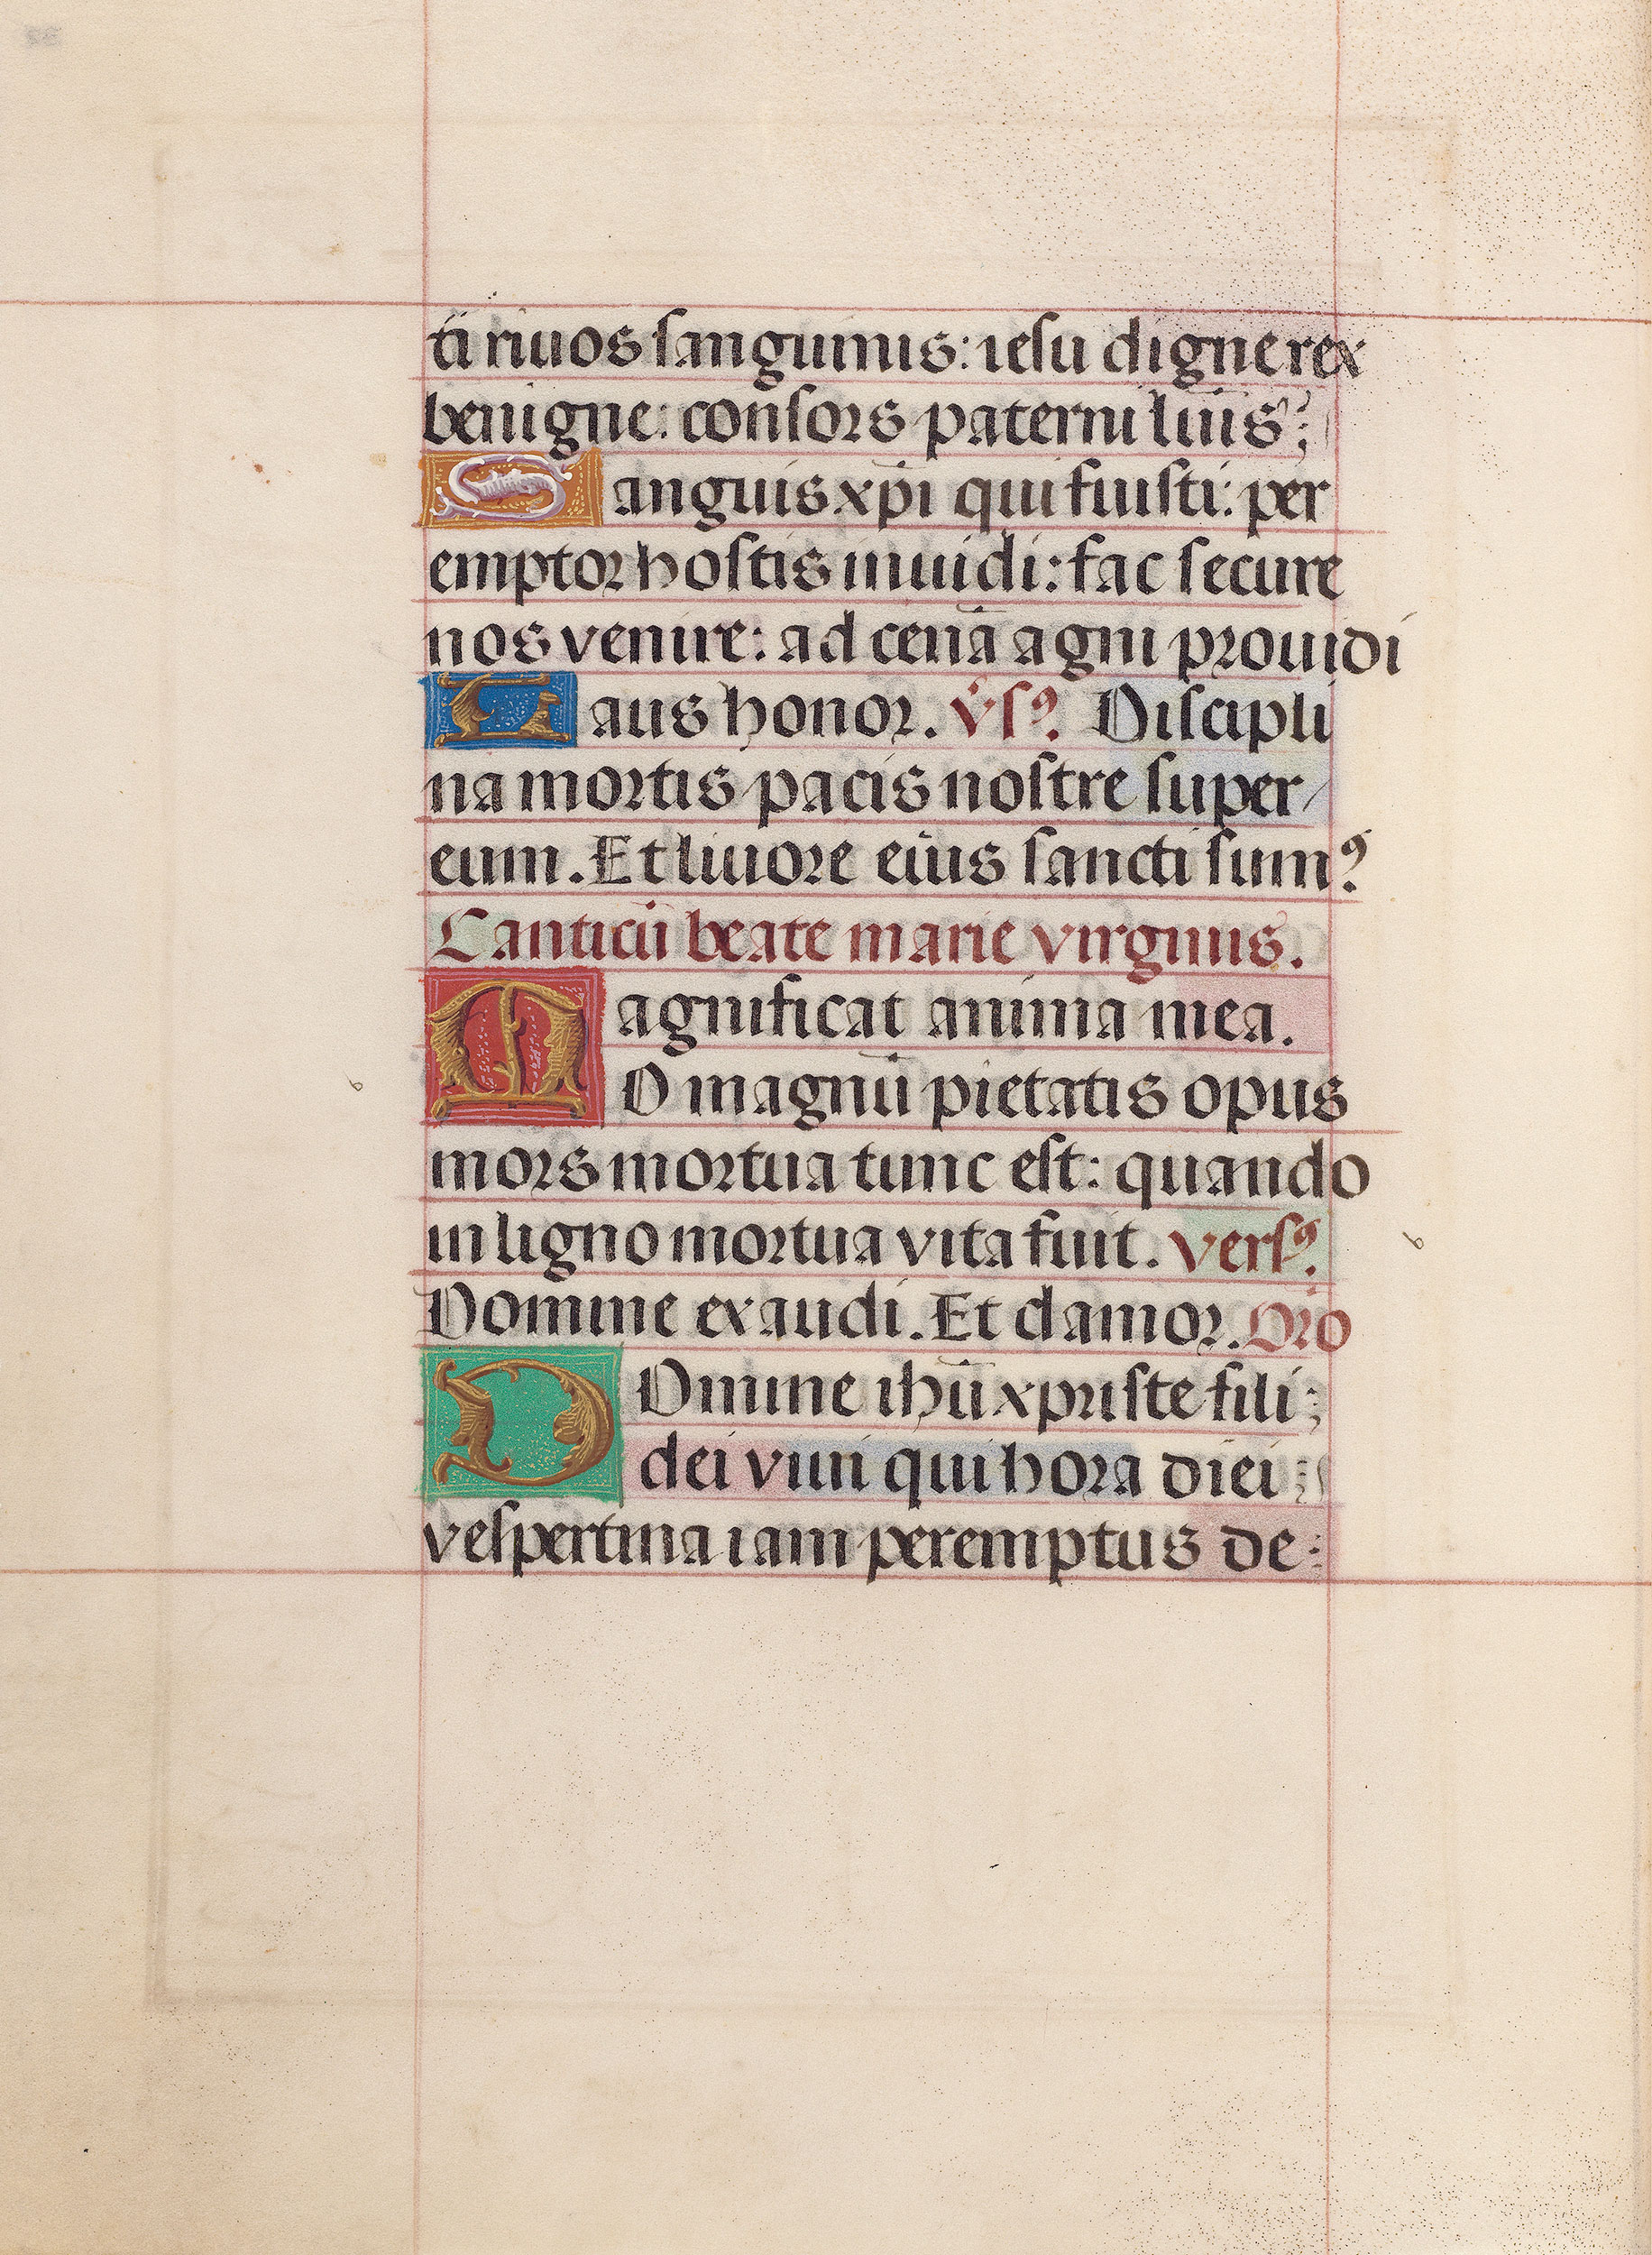 ti riuos sanguinis: iesu digne rex
benigne: consors paterni luīs;
Sanguis xp̄i qui fuisti: per
emptor hostis inuidi: fac secure
nos venire: ad cenā agni prouidi
Laus honor. v̄sꝰ. Discipli
na mortis pacis nostre super/
eum. Et liuore eius sancti sumꝰ
Canticū beate marie virginis.
Magnificat anima mea.
O magnū pietatis opus
mors mortua tunc est: quando
in ligno mortua vita fuit. versꝰ.
Domine exaudi. Et clamor. Oro
DOmine ihū xpriste fili;
dei viui qui hora diei
vespertina iam peremptus de: